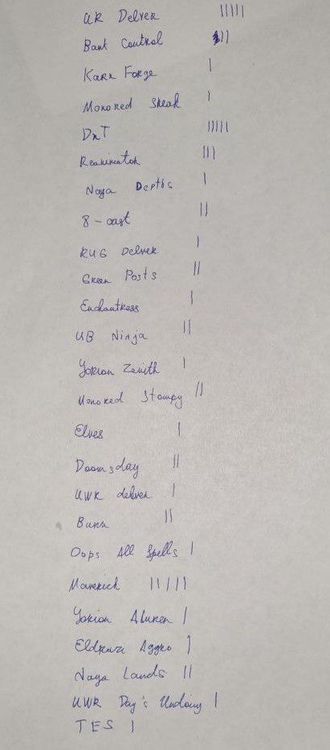 UR Delver |||||
Bant Control |||
Karn Forge |
Monored Sneak |
DnT |||||
Reanimator |||
Naya Depths |
8-cast ||
RUG Delver |
Green Posts ||
Enchantress |
UB Ninja ||
Yorion Zenith |
Monored Stompy ||
Elves |
Doomsday ||
UWR delver |
Burn ||
Oops All Spells |
Maverick |||||
Yorion Aluren |
Eldrazi Aggro |
Naya Lands ||
UWR Day's Undoing |
TES |